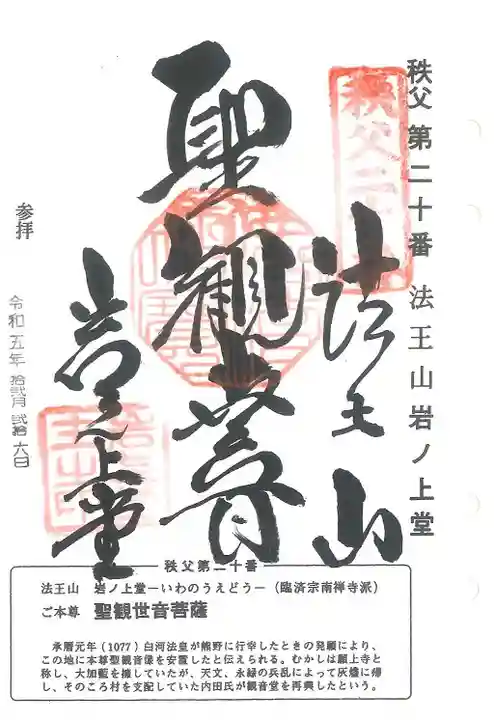 秩父第二十番 法王山岩ノ上堂
秩父二十番
法王山
聖観世音
岩之上堂
参拝
令和五年 拾弐月 弐拾六日
秩父第二十番
法王山 岩ノ上堂―いわのうえどう―(臨済宗南禅寺派)
ご本尊 聖観世音菩薩
承暦元年(1077)白河法皇が熊野に行幸したときの発願により、
この地に本尊聖観音像を安置したと伝えられる。むかしは願上寺と
称し、大加藍を擁していたが、天文、永録の兵乱によって灰燼に帰
し、そのころ村を支配していた内田氏が観音堂を再興したという。